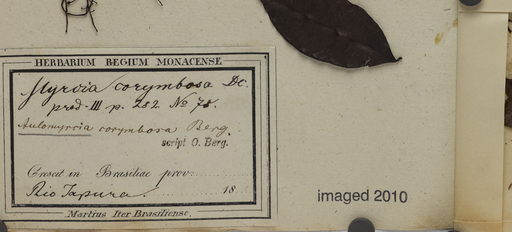 HERBARIUM REGIUM MONACENSE
Myrcia corymbosa Dc.
prod. III p. 252. No 78.
Aulomyrcia corymbosa Berg.
script O. Berg.
Crescit in Brasiliae prov:
Rio Iapura. 18
Martius Iter Brasiliense.
imaged 2010